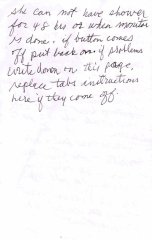 she can not have shower
for 48 hrs or when monitor
is done. if button comes
off put back on. if problems
write down on this page.
replace tabs instructions
here if they come off.